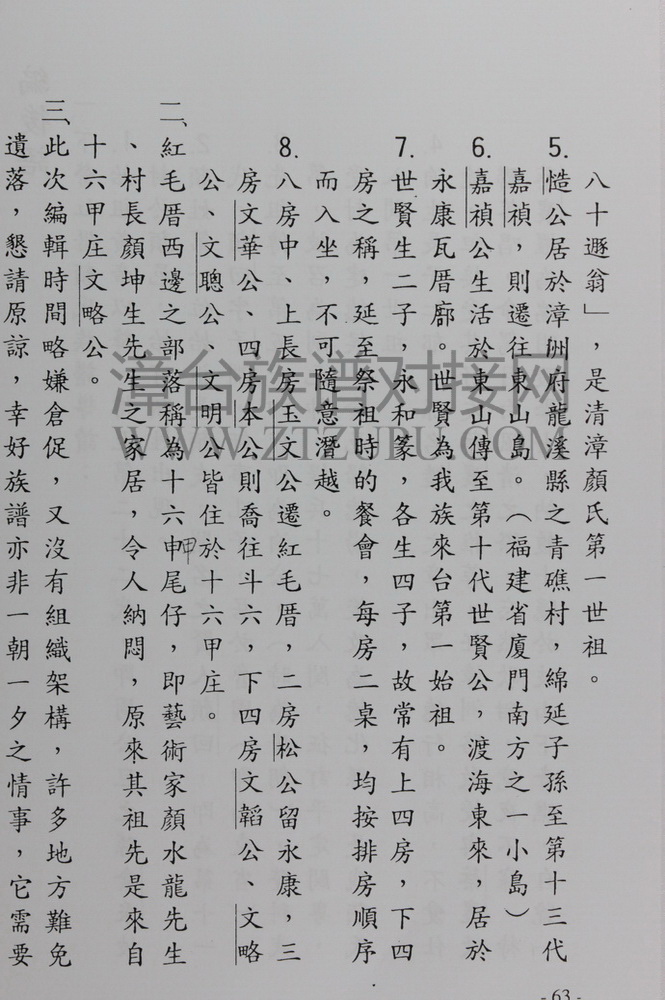 八十遯翁」，是清漳顏氏第一世祖。
5.慥公居於漳洲府龍溪縣之青礁村，綿延子孫至第十三代
嘉禎，則遷往東山島。（福建省廈門南方之一小島）
6.嘉禎公生活於東山傳至第十代世賢公，渡海東來，居於
永康瓦厝廍。世賢為我族來台第一始祖。
7.世賢生二子，永和篆，各生四子，故常有上四房，下四
房之稱，延至祭祖時的餐會，每房二桌，均按排房順序
而入坐，不可隨意潛越。
8.八房中、上長房玉文公遷紅毛厝，二房松公留永康，三
房文華公、四房本公則喬往斗六，下四房文韜公、文略
公、文聰公、文明公皆住於十六甲庄。
二、紅毛厝西邊之部落稱為十六甲尾仔，即藝術家顏水龍先生
、村長顏坤生先生之家居，令人納悶，原來其祖先是來自
十六甲庄文略公。
三、此次編輯時間略嫌倉促，又沒有組織架構，許多地方難免
遺落，懇請原諒，幸好族譜亦非一朝一夕之情事，它需要
- 63 -
漳台族谱对接网
WWW.ZTZUPU.COM